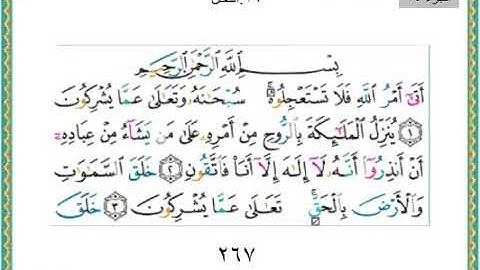 بِسْمِ اللَّهِ الرَّحْمَٰنِ الرَّحِيمِ
أَتَىٰ أَمْرُ اللَّهِ فَلَا تَسْتَعْجِلُوهُ ۚ سُبْحَانَهُ وَتَعَالَىٰ عَمَّا يُشْرِكُونَ
١ يُنَزِّلُ الْمَلَائِكَةَ بِالرُّوحِ مِنْ أَمْرِهِ عَلَىٰ مَنْ يَشَاءُ مِنْ عِبَادِهِ
أَنْ أَنْذِرُوا أَنَّهُ لَا إِلَٰهَ إِلَّا أَنَا فَاتَّقُونِ ٢ خَلَقَ السَّمَاوَاتِ
وَالْأَرْضَ بِالْحَقِّ ۚ تَعَالَىٰ عَمَّا يُشْرِكُونَ ٣ خَلَقَ
٢٦٧